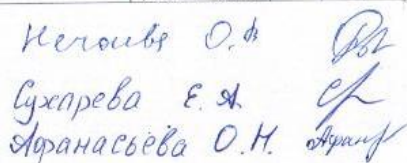 Нечаева О.В
Сухарева Е.А.
Афанасьева О.Н.